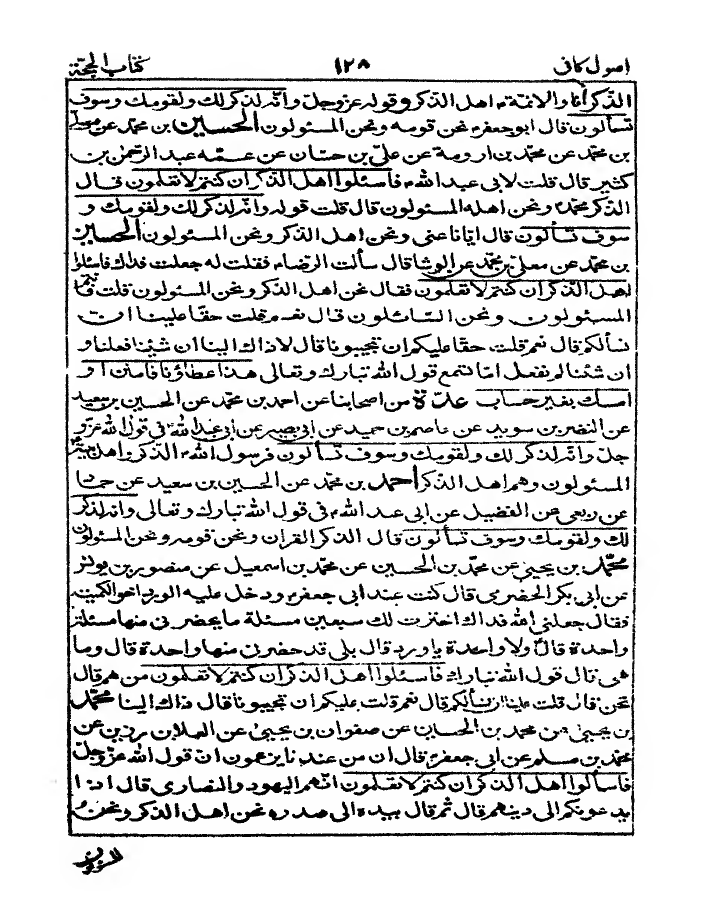 اصول كافى ١٢٨ كتاب الحجّة
الذّكر أنا والائمّة ع اهل الذكر وقوله عزّوجلّ وانّه لذكر لك ولقومك وسوف
تسألون قال ابو جعفر ع نحن قومه ونحن المسئولون الحسين بن محمّد عن معلّى
بن محمّد عن محمّد بن اورمة عن علىّ بن حسّان عن عمّه عبد الرّحمن بن
كثير قال قلت لابى عبد اللّه ع فاسئلوا اهل الذّكر ان كنتم لا تعلمون قال
الذّكر محمّد ص ونحن اهله المسئولون قال قلت قوله وانّه لذكر لك ولقومك و
سوف تسألون قال ايّانا عنى ونحن اهل الذّكر ونحن المسئولون الحسين
بن محمّد عن معلّى بن محمّد عن الوشّا قال سألت الرّضا ع فقلت له جعلت فداك فاسئلوا
اهل الذّكر ان كنتم لا تعلمون فقال نحن اهل الذّكر ونحن المسئولون قلت فانتم
المسئولون ونحن السّائلون قال نعم قلت حقّا علينا ان
نسألكم قال نعم قلت حقّا عليكم ان تجيبونا قال لا ذاك الينا ان شئنا فعلنا و
ان شئنا لم نفعل امّا تسمع قول اللّه تبارك وتعالى هذا عطاؤنا فامنن او
امسك بغير حساب عدّة من اصحابنا عن احمد بن محمّد عن الحسين بن سعيد
عن النضر بن سويد عن عاصم بن حميد عن ابى بصير عن ابى عبد اللّه ع فى قول اللّه عزّو
جلّ وانّه لذكر لك ولقومك وسوف تسألون فرسول اللّه ص الذّكر واهل بيته
المسئولون وهم اهل الذّكر احمد بن محمّد عن الحسين بن سعيد عن حمّاد
عن ربعى عن الفضيل عن ابى عبد اللّه ع فى قول اللّه تبارك وتعالى وانّه لذكر
لك ولقومك وسوف تسألون قال الذّكر القران ونحن قومه ونحن المسئولون
محمّد بن يحيى عن محمّد بن الحسين عن محمّد بن اسمعيل عن منصور بن يونس
عن ابى بكر الحضرمى قال كنت عند ابى جعفر ع ودخل عليه الورد اخو الكميت
فقال جعلنى اللّه فداك اخترت لك سبعين مسئلة ما يحضرنى منها مسئلة
واحدة قال ولا واحدة يا ورد قال بلى قد حضرنى منها واحدة قال وما
هى قال قول اللّه تبارك فاسئلوا اهل الذّكر ان كنتم لا تعلمون من هم قال
نحن قال قلت علينا ان نسألكم قال نعم قلت عليكم ان تجيبونا قال ذاك الينا محمّد
بن يحيى عن محمّد بن الحسين عن صفوان بن يحيى عن العلاء بن رزين عن
محمّد بن مسلم عن ابى جعفر ع قال ان من عندنا يزعمون انّ قول اللّه عزّوجلّ
فاسألوا اهل الذّكر ان كنتم لا تعلمون انّهم اليهود والنّصارى قال اذا
يدعونكم الى دينهم قال ثم قال بيده الى صدره نحن اهل الذّكر ونحن
المسئولون